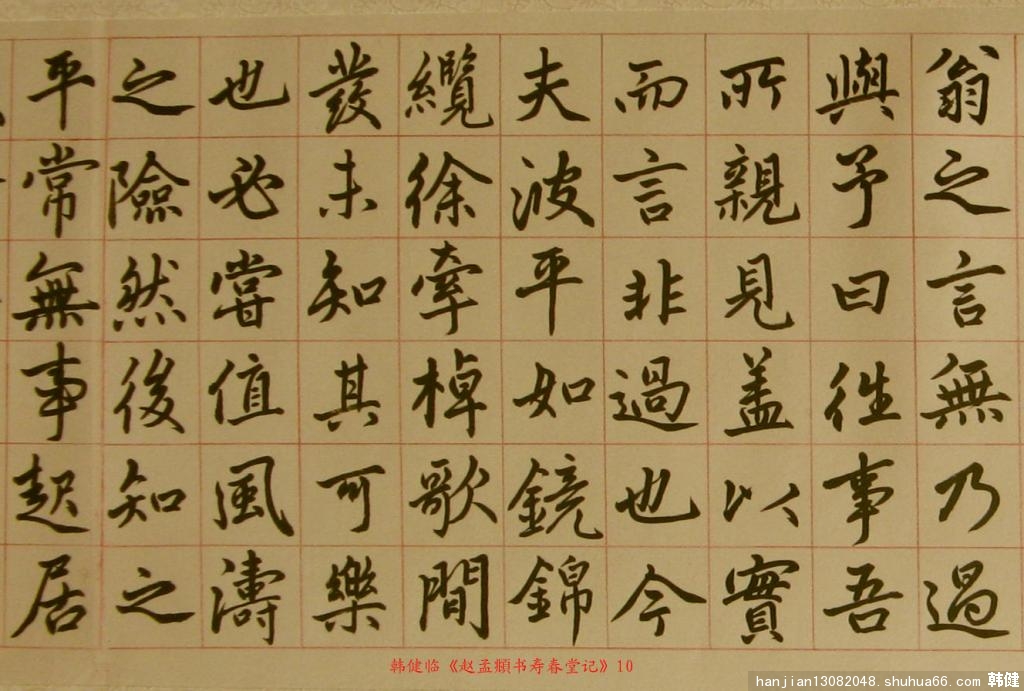 翁之言無乃過
與予曰往事吾
所親見盖以實
而言非過也今
夫波平如鏡錦
纜徐牽棹歌間
發未知其可樂
也必嘗值風濤
之險然後知之
平常無事起居
韩健临《赵孟頫书寿春堂记》10
hanjian13082048.shuhua66.com 韩健